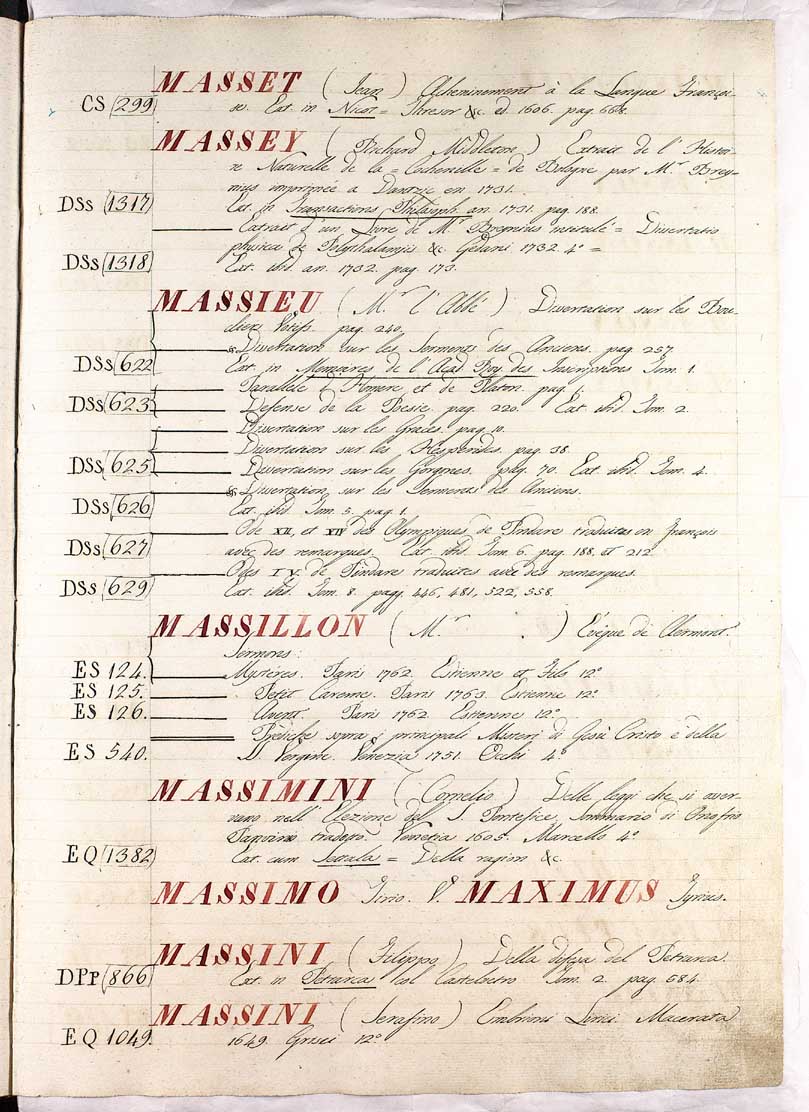 MASSET ( Jean ) Acheminement à la Langue Françoi-
CS (299) se. Ext. in Nicot = Thresor &c. ed. 1606. pag. 668.
MASSEY ( Richard Middleton ) Extrait de l'Histoi-
re Naturelle de la = Cochenille = de Pologne par M.r Brey-
nius imprimée a Dantzic en 1731.
DSs (1317) Ext. in Transactions Philosoph. an. 1731. pag. 188.
Extrait d'un Livre de M.r Breynius intitulé = Dissertatio
physica de Polythalamiis &c. Gedani 1732. 4.° =
DSs (1318) Ext. ibid. an. 1732. pag. 173.
MASSIEU ( M.r l'Abbé ) Dissertation sur les Bou-
cliers Votifs. pag. 240.
Dissertation sur les Serments des Anciens. pag. 257
DSs (622 Ext. in Memoires de l'Acad. Roy. des Inscriptions Tom. 1.
Parallele d'Homere et de Platon. pag. 1.
DSs (623 Defense de la Poesie. pag. 220. Ext. ibid. Tom. 2.
Dissertation sur les Graces. pag. 10.
Dissertation sur les Hesperides. pag. 38.
DSs (625 Dissertation sur les Gorgones. pag. 70. Ext. ibid. Tom. 4.
Dissertation sur les Serments des Anciens.
DSs (626 Ext. ibid. Tom. 5. pag. 1.
Ode XII, et XIV des Olympiques de Pindare traduites en françois
DSs (627 avec des remarques. Ext. ibid. Tom. 6. pag. 188, et 212.
Odes I V. de Pindare traduites avec des remarques.
DSs (629 Ext. ibid. Tom. 8. pagg. 446, 481, 522, 558.
MASSILLON ( M.r . ) Evêque de Clermont.
Sermons:
ES 124. Mystères. Paris 1762. Estienne et Fils 12.°
ES 125. Petit Careme. Paris 1763. Estienne 12.°
ES 126. Avent. Paris 1762. Estienne 12.°
Prediche sopra i principali Misterj di Gesù Cristo e della
ES 540. S. Vergine. Venezia 1751. Occhi 4.°
MASSIMINI ( Cornelio ) Delle leggi che si osser-
vano nell'Elezione del S. Pontefice, Sommario di Onofrio
Panvinio tradotto. Venetia 1605. Marcello 4.°
EQ (1382) Ext. cum Settala = Della ragion &c.
MASSIMO Tirio. V. MAXIMUS Tyrius.
MASSINI ( Filippo ) Della difesa del Petrarca.
DPp (866) Ext. in Petrarca col Castelvetro Tom. 2. pag. 584.
MASSINI ( Serafino ) Embrioni Lirici Macerata
EQ 1049. 1649. Grisei 12.°